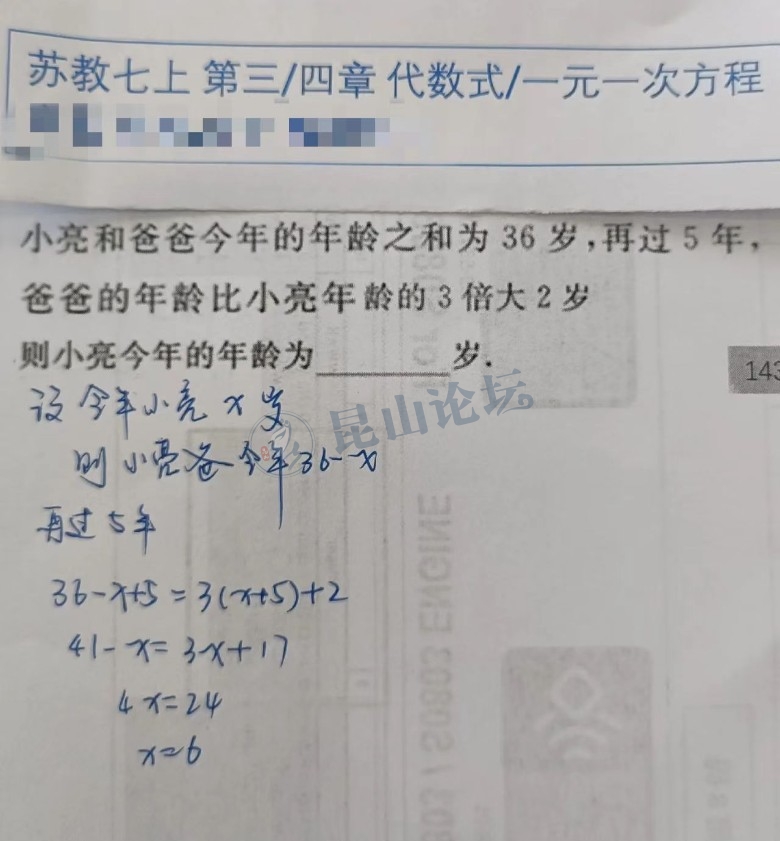 苏教七上 第三/四章 代数式/一元一次方程
小亮和爸爸今年的年龄之和为 36 岁,再过 5 年,
爸爸的年龄比小亮年龄的 3 倍大 2 岁
则小亮今年的年龄为________岁.
143
设今年小亮 x 岁
昆山论坛
则小亮爸今年36-x
再过5年
36-x+5=3(x+5)+2
41-x=3x+17
4x=24
x=6